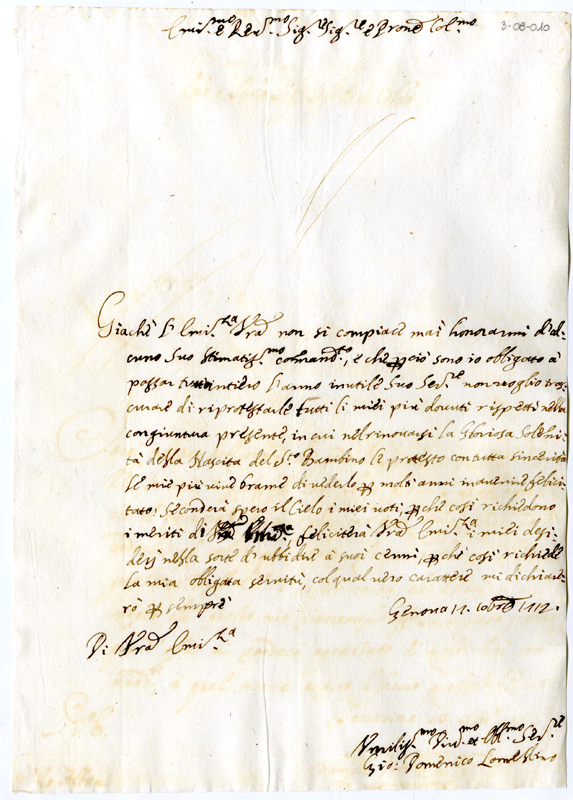 Emi.mo e Rev.mo Sig.r Sig.r e Prone Col.mo
3-08-010
Giache l'Emi.za Vra non si compiace mai honorarmi d'al-
cuno suo stimatis.mo comand.to, e che perciò sono io obligato à
passar intiero l'anno inutile suo Ser.re non voglio tras-
curare di riprotestarle tutti li miei più dovuti rispetti nella
congiuntura presente, in cui nel rinovarsi la Gloriosa Solenni-
tà della Nascita del S.to Bambino le protesto con tutta sincerità
le mie più vive brame di vederlo per molti anni inavenire felici-
tato; seconderà spero il Cielo i miei voti, perche così richiedono
i meriti di feliciterà Vra Emi.za i miei desi-
derj nella sorte d'ubbidire a suoi cenni, perche così richiede
la mia obligata servitù, col qual vero carattere mi dichiare-
rò per sempre
Genova 1712.
Di Vra Emi.za
Umilis.mo Div.mo et Obl.mo Ser.re
Gio: Domenico Lomellino